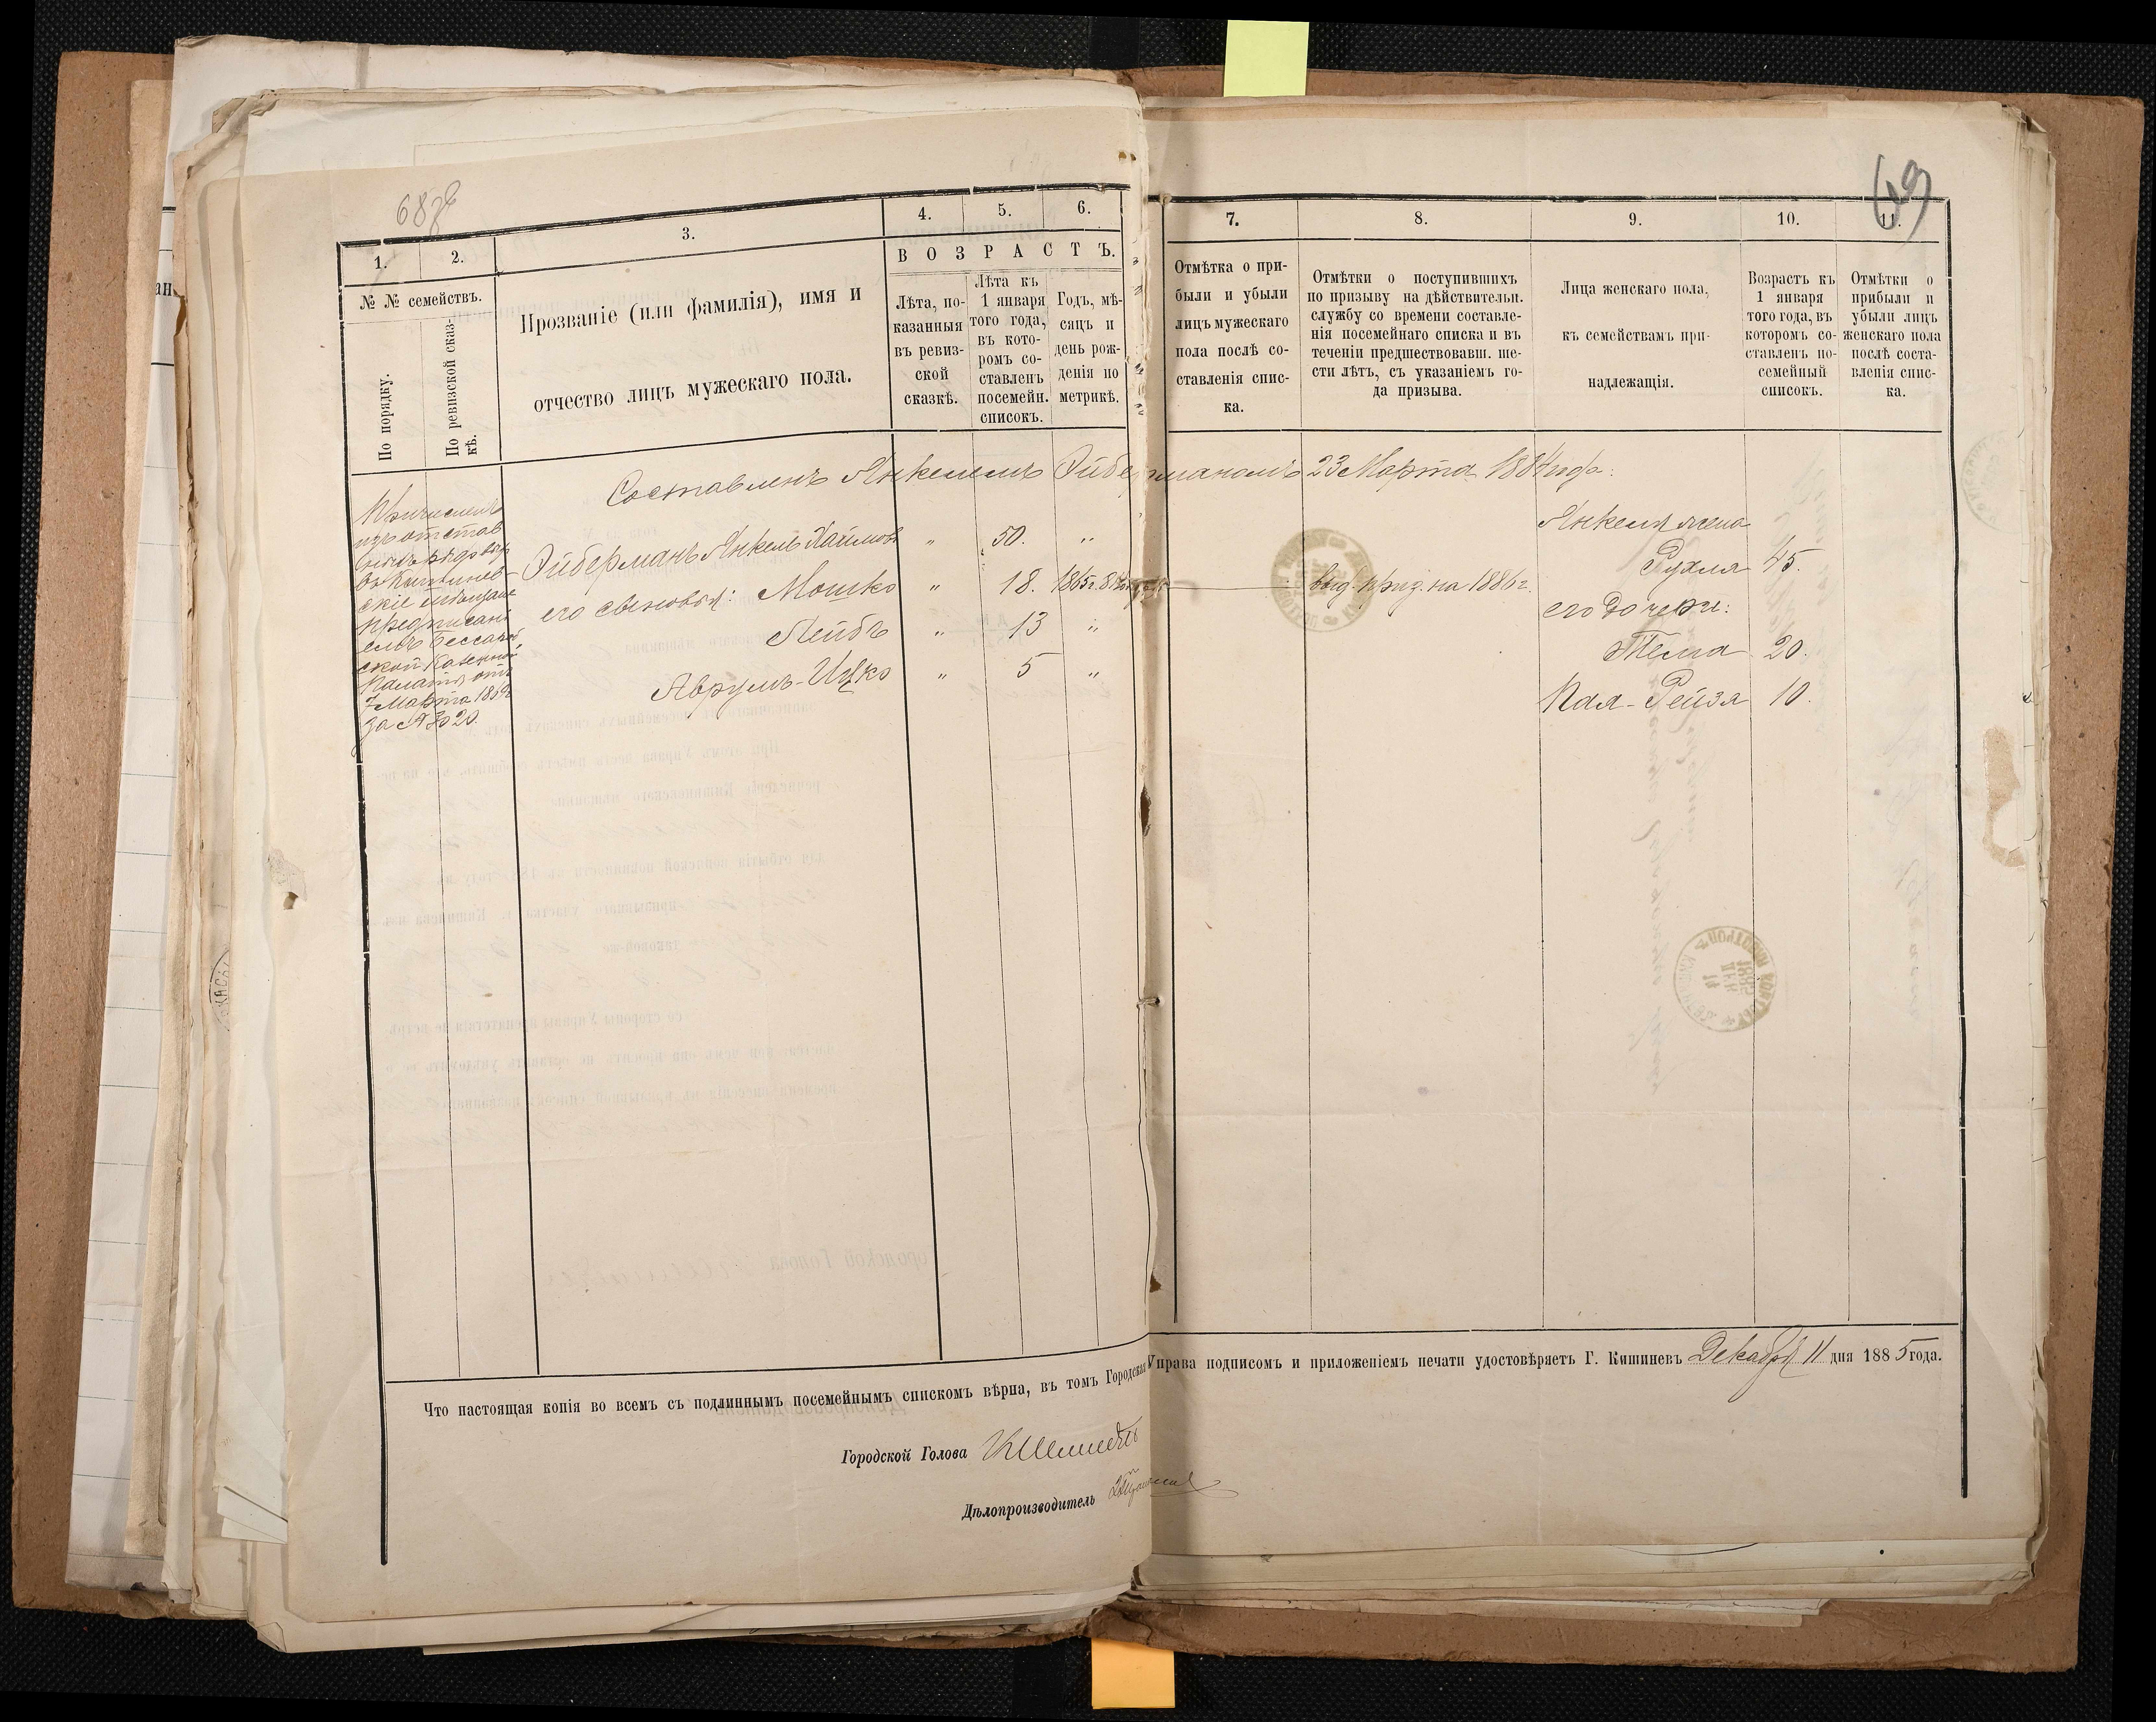 69
1.
2.
3.
4.
5.
6.
7.
8.
9.
10.
11.
№ № семействъ.
По порядку.
По ревизской сказ-
кѣ.
Прозваніе (или фамилія), имя и
отчество лицъ мужескаго пола.
ВОЗРАСТЪ.
Лѣта, по-
казанныя
въ ревиз-
ской
сказкѣ.
Лѣта къ
1 января
того года,
въ кото-
ромъ со-
ставленъ
посемейн.
списокъ.
Годъ, мѣ-
сяцъ и
день рож-
денія по
метрикѣ.
Отмѣтка о при-
были и убыли
лицъ мужескаго
пола послѣ со-
ставленія спис-
ка.
Отмѣтки о поступившихъ
по призыву на дѣйствительн.
службу со времени составле-
нія посемейнаго списка и въ
теченіи предшествовавш. ше-
сти лѣтъ, съ указаніемъ го-
да призыва.
Лица женскаго пола,
къ семействамъ при-
надлежащія.
Возрастъ къ
1 января
того года, въ
которомъ со-
ставленъ по-
семейный
списокъ.
Отмѣтки о
прибыли и
убыли лицъ
женскаго пола
послѣ соста-
вленія спис-
ка.
Составленъ Янкелемъ Эйберманомъ 23 Марта 1884 года.
Причислены
изъ отстав
въ Кишинев-
скіе мѣщане
предписані
емъ Бессараб
ской Казенной
Палаты отъ
7 Марта
за № 3020.
Эйберманъ Янкель Хаимовъ " 50. "
его сыновья: Мошко " 18. 1865г. приз. на 1886 г.
Лейбъ " 13 "
Аврумъ-Ицко " 5 "
Янкеля жена
Рухля 45.
его дочери:
Тема 20.
Пая-Рейза 10.
Что настоящая копія во всемъ съ подлиннымъ посемейнымъ спискомъ вѣрна, въ томъ Городская Управа подписомъ и приложеніемъ печати удостовѣряетъ Г. Кишиневъ Декабря 11 дня 1885 года.
Городской Голова КШмидтъ
Дѣлопроизводитель